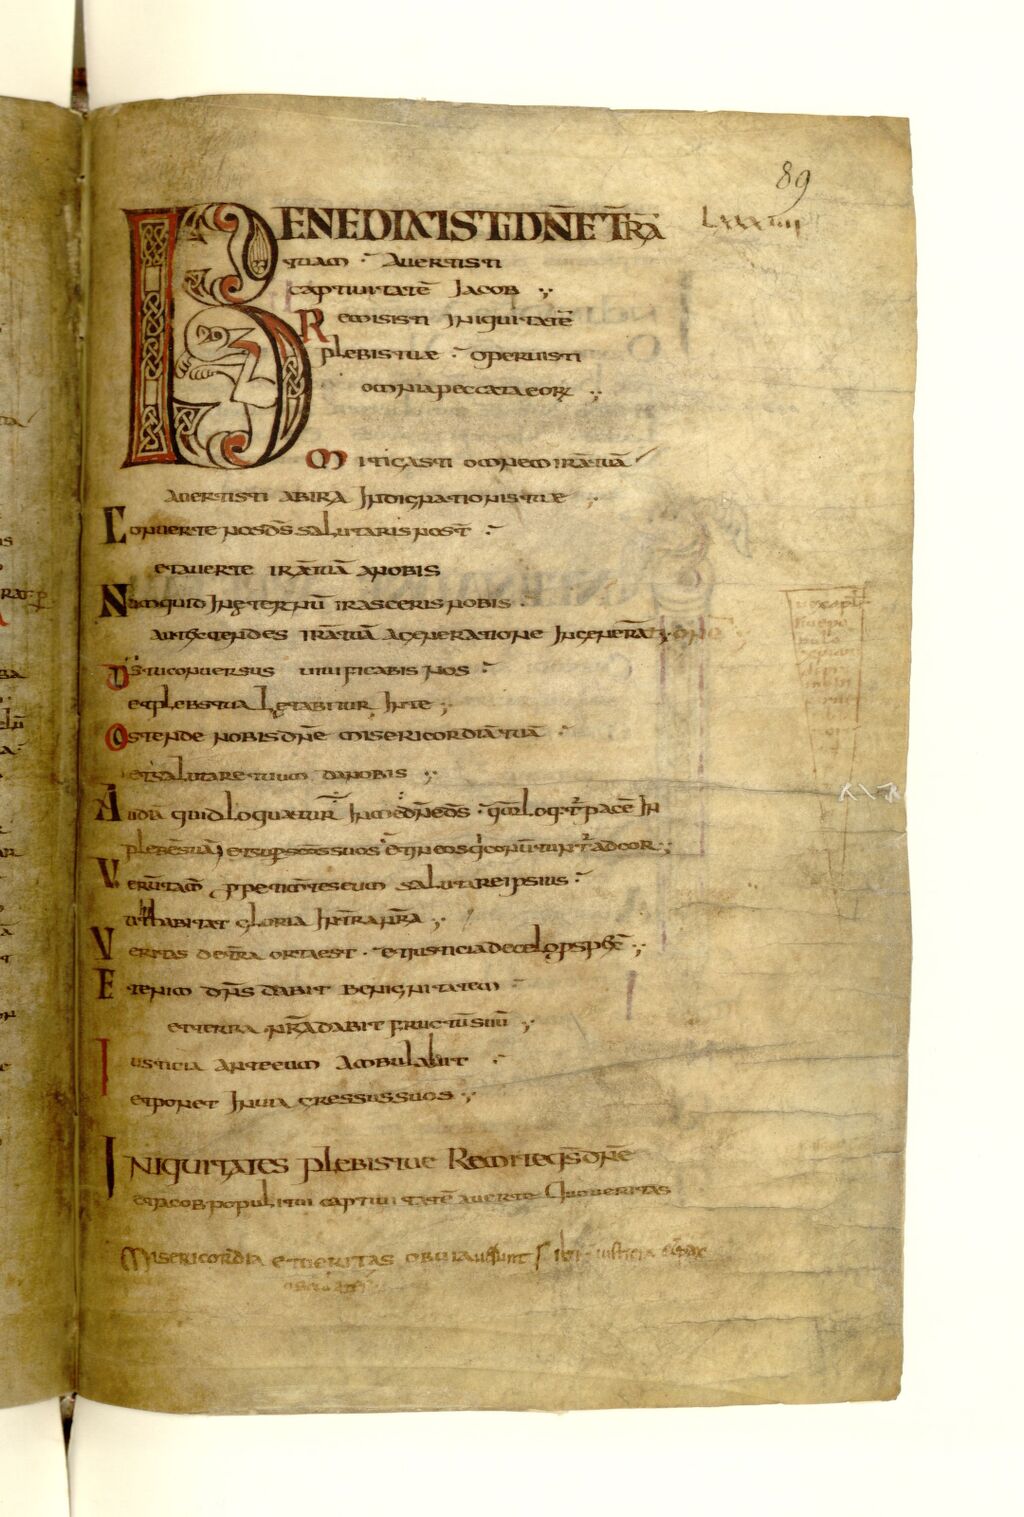 89
BENEDIXISTI DN̄E T̄RA LXXXIIII
tuam · Avertisti
captiuitatē Jacob
Remisisti iniquitatē
plebis tuæ · operuisti
omnia peccata eoꝝ
Mitigasti omnem irā tuā
avertisti ab ira indignationis tuæ
Converte nos d̄s salutaris nost̄
et averte irā tuā a nobis
Numquid in ęternū irasceris nobis
aut extendes irā tuā a generatione in generā
D̄s tu conversus vivificabis nos
et plebs tua lętabitur in te
Ostende nobis dn̄e misericordiā tuā
et salutare tuum da nobis
Audiā quid loquatur in me dn̄s d̄s · qm̄ loqt̄ pacē in
plebē suā et sup scōs suos et in eos qi convertunt̄ ad cor
Verūtam̄ ꝓpe tim̄tes eum salutare ipsius
ut inhabitet gloria in t̄ra nr̄a
Veritas de t̄ra orta est · et justicia de celo psp̄
Etenim dn̄s dabit benignitatem
et terra nr̄a dabit fructū suū
Iusticia ante eum ambulabit
et ponet in via gressus suos
Iniquitates plebis tue Remitteqs̄ dn̄e
et jacob populi tui captivitatē averte Quo veritas
Misericordia et veritas obviaverunt sibi iusticia et pax